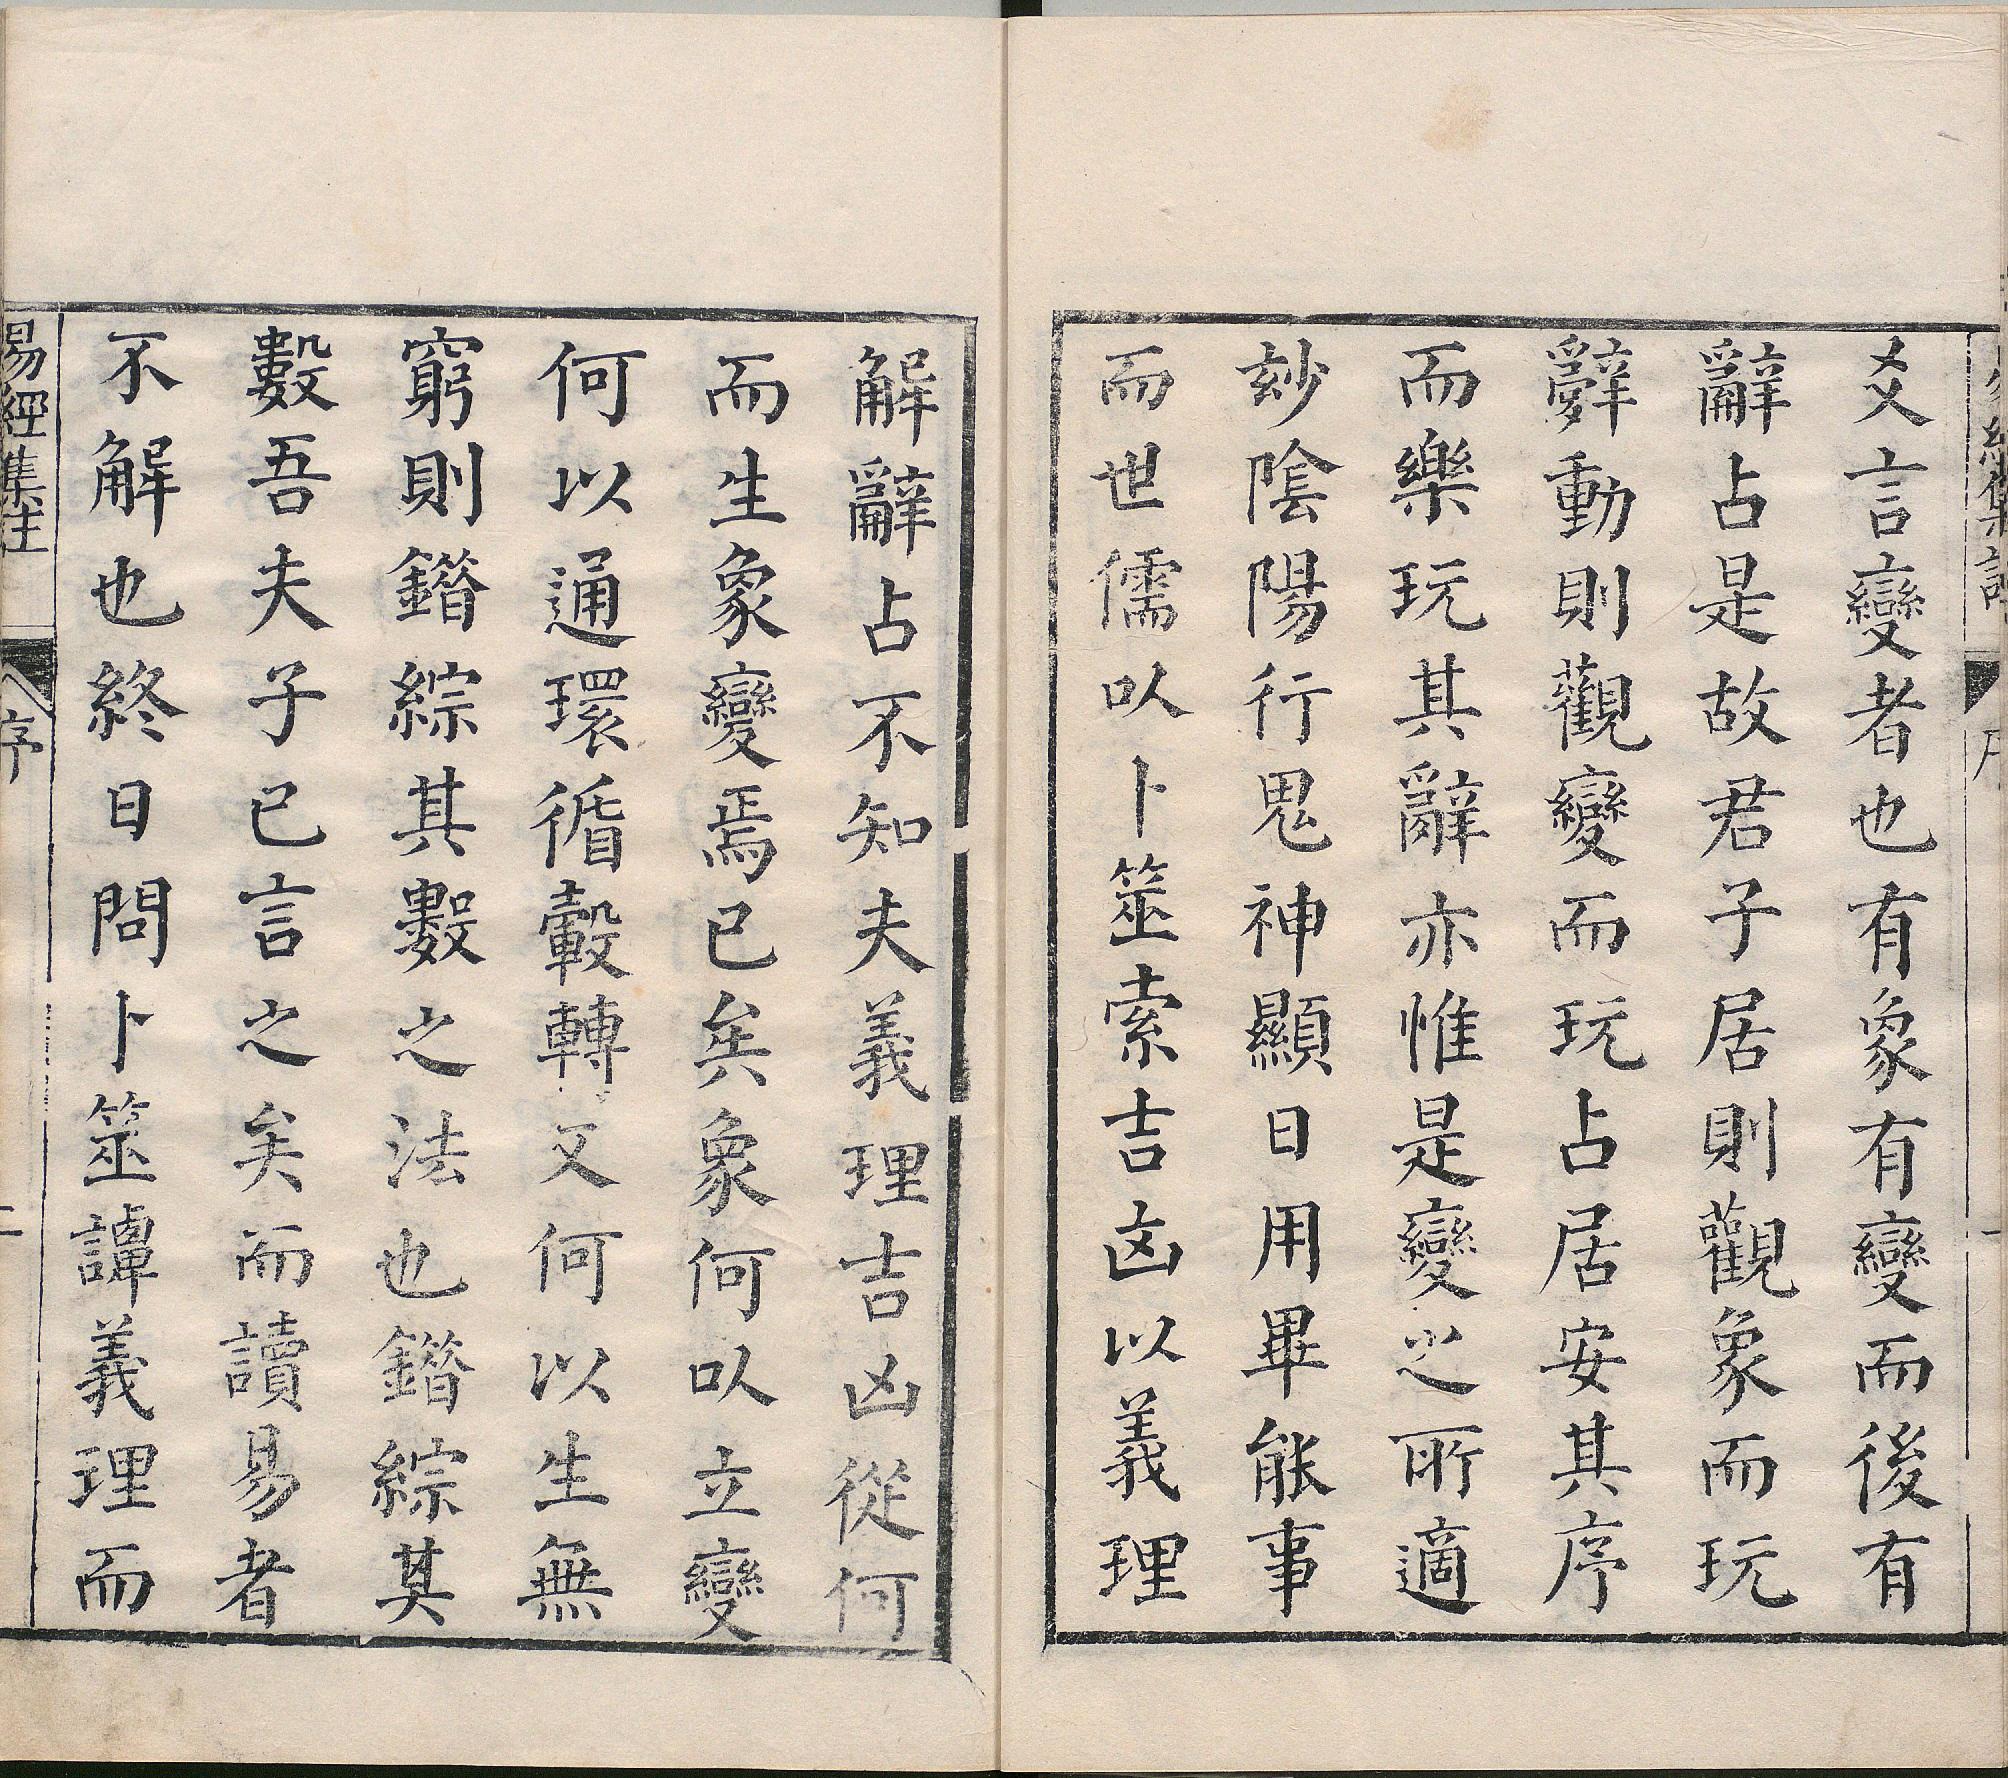 爻言變者也有象有變而後有
辭占是故君子居則觀象而玩
辭動則觀變而玩占居安其序
而樂玩其辭亦惟是變之所適
玅陰陽行鬼神顯日用畢能事
而世儒以卜筮索吉凶以義理
解辭占不知夫義理吉凶從何
而生象變焉已矣象何以立變
何以通環循轂轉文何以生無
窮則鐟綜其數之法也鐟綜其
數吾夫子已言之矣而讀易者
不解也終日問卜筮譚義理而
易經集注
序
二